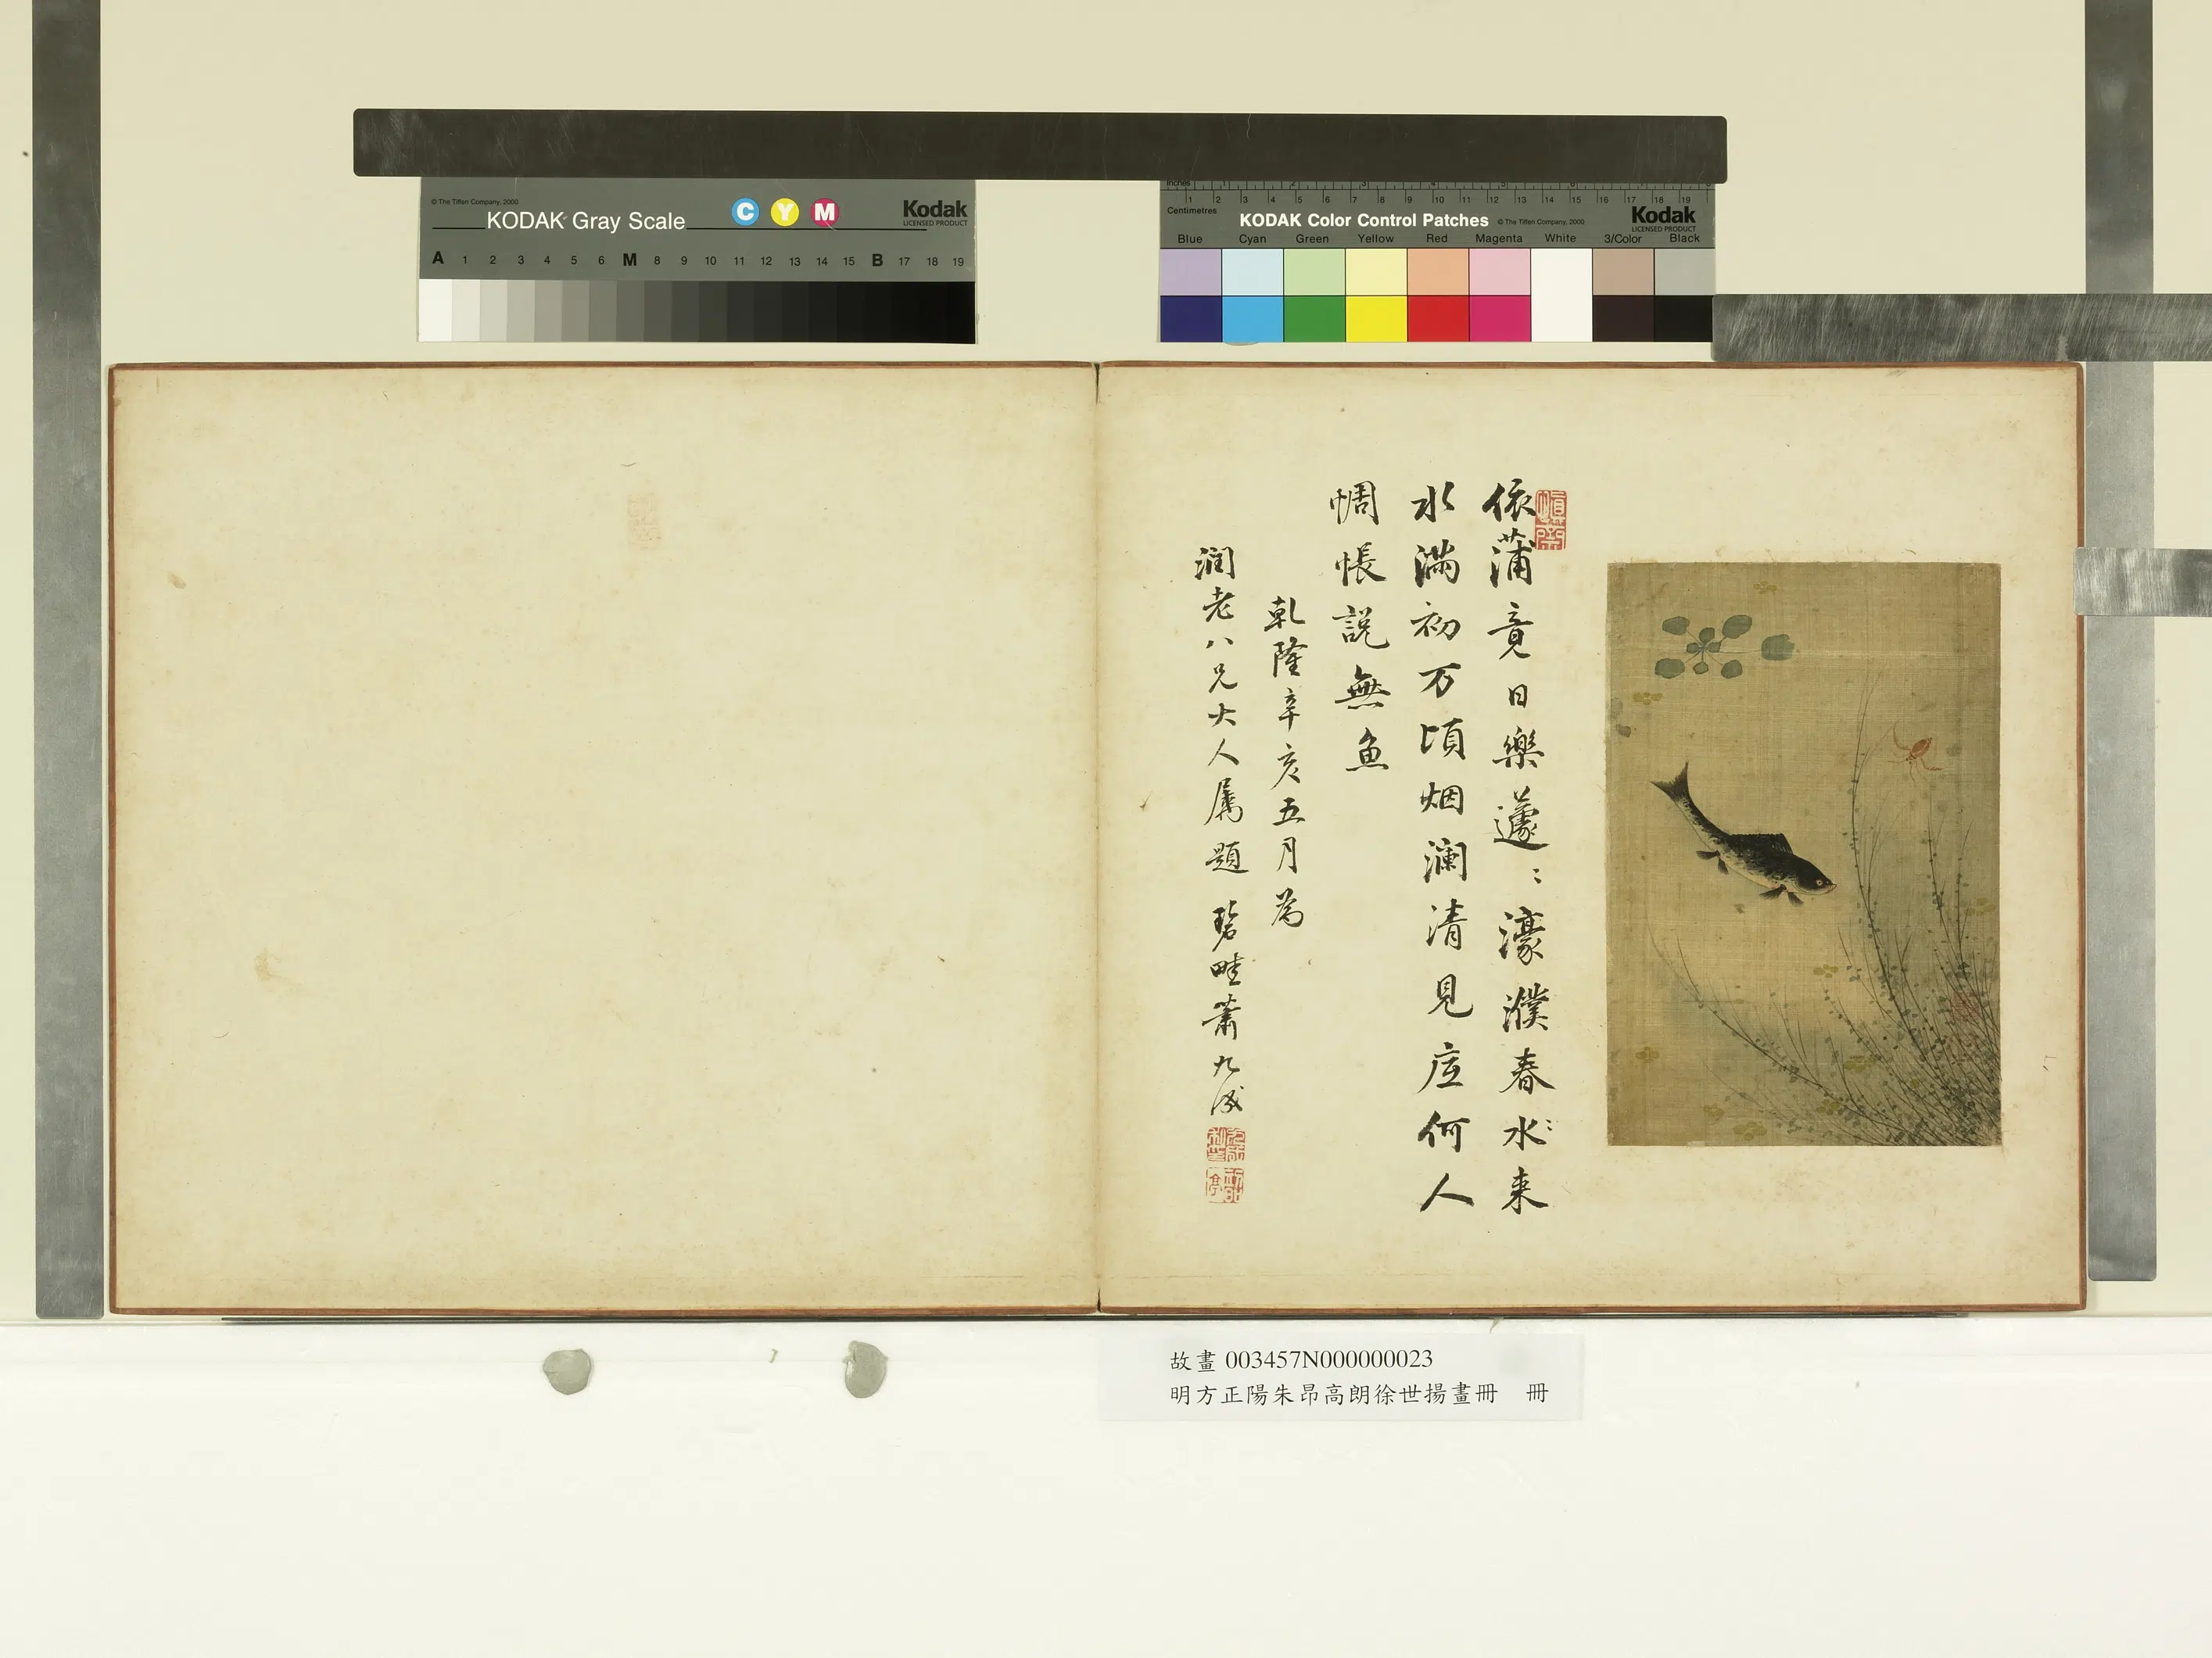 © The Tiffen Company, 2000
KODAK Gray Scale
C Y M
Kodak
LICENSED PRODUCT
A 1 2 3 4 5 6 M 8 9 10 11 12 13 14 15 B 17 18 19
Inches 1 2 3 4 5 6 7 8
Centimetres 1 2 3 4 5 6 7 8 9 10 11 12 13 14 15 16 17 18 19
KODAK Color Control Patches © The Tiffen Company, 2000
Kodak
LICENSED PRODUCT
Blue Cyan Green Yellow Red Magenta White 3/Color Black
依蒲竟日樂蘧：濠濮春水：来
水滿初万頃烟瀾清見底何人
惆悵説無魚
乾隆辛亥五月為
潤老八兄大人属題 碧畦蕭九成
故畫 003457N000000023
明方正陽朱昂高朗徐世揚畫冊 冊